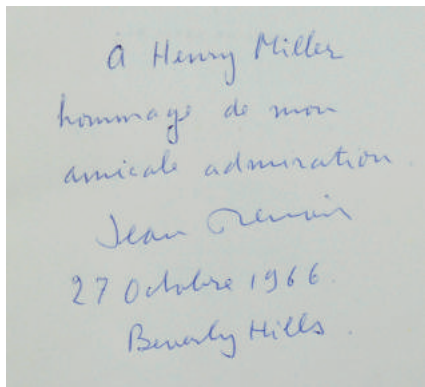 à Henry Miller
hommage de mon
amicale admiration
Jean Renoir
27 Octobre 1966.
Beverly Hills.